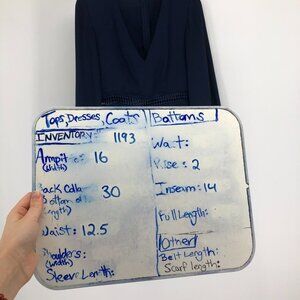 Tops, Dresses, Coats
INVENTORY: 1193
Armpits: 16
(width)
Back Colla
Bottom of
length)
30
Waist: 12.5
Shoulders:
(width)
Sleeve Length:
Bottoms
Waist:
Rise: 2
Inseam: 14
Full Length:
Other
Belt Length:
Scarf length: